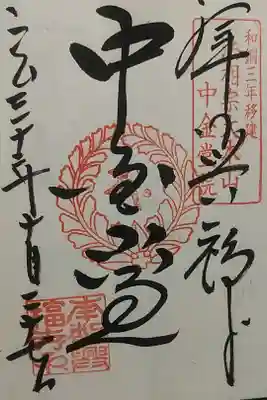 和銅三年移建
法相宗大本山
中金堂院
奉拝 興福寺
中金堂
平成三十年十月